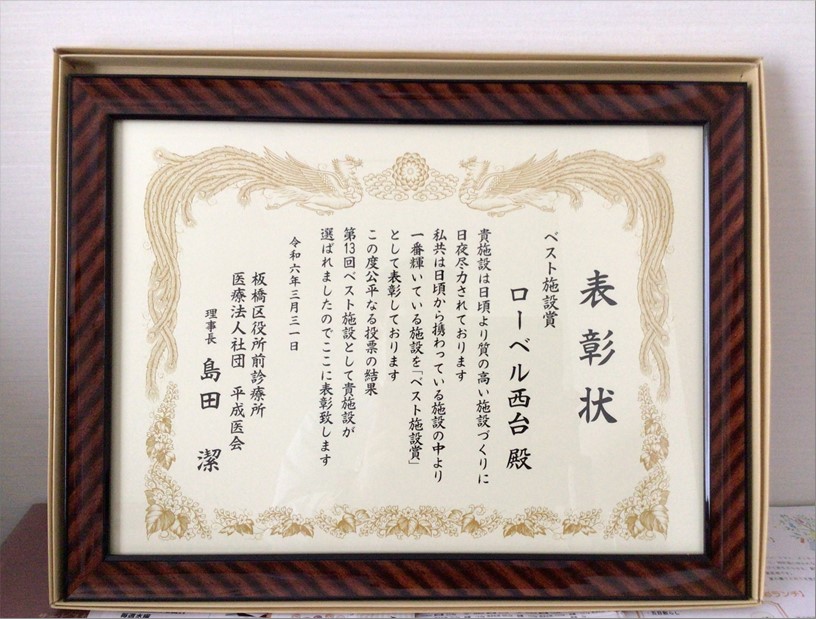 表彰状
ベスト施設賞
ローベル西台 殿
貴施設は日頃より質の高い施設づくりに
日夜尽力されております
私共は日頃から携わっている施設の中より
一番輝いている施設を「ベスト施設賞」
として表彰しております
この度公平なる投票の結果
第13回ベスト施設として貴施設が
選ばれましたのでここに表彰致します
令和六年三月三一日
板橋区役所前診療所
医療法人社団 平成医会
理事長 島田 潔